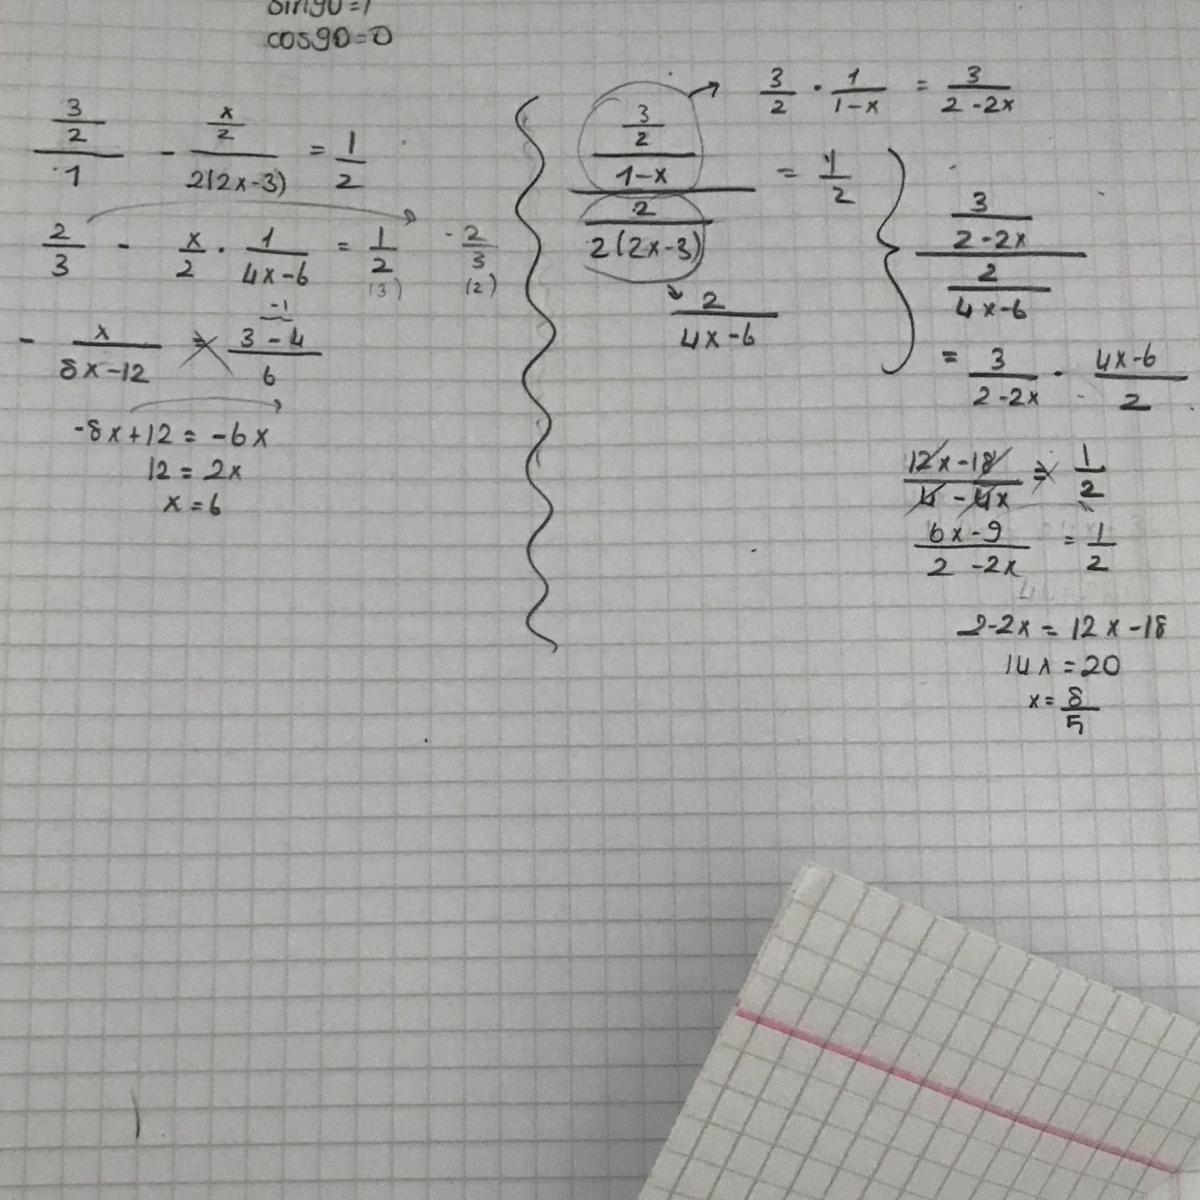 sin90=1
cos90=0
3/2 / 1 - x/2 / 2(2x-3) = 1/2
2/3 - x/2 · 1/4x-6 = 1/2 (3) - 2/3 (2)
-1
- x/8x-12 = 3-4/6
-8x+12 = -6x
12 = 2x
x = 6
3/2 · 1/1-x = 3/2-2x
3/2 / 1-x / 2 / 2(2x-3) = 1/2
2/4x-6
3/2-2x / 2/4x-6
= 3/2-2x · 4x-6/2
12x-18/4-4x = 1/2
6x-9/2-2x = 1/2
2-2x = 12x-18
14x = 20
x = 8/5